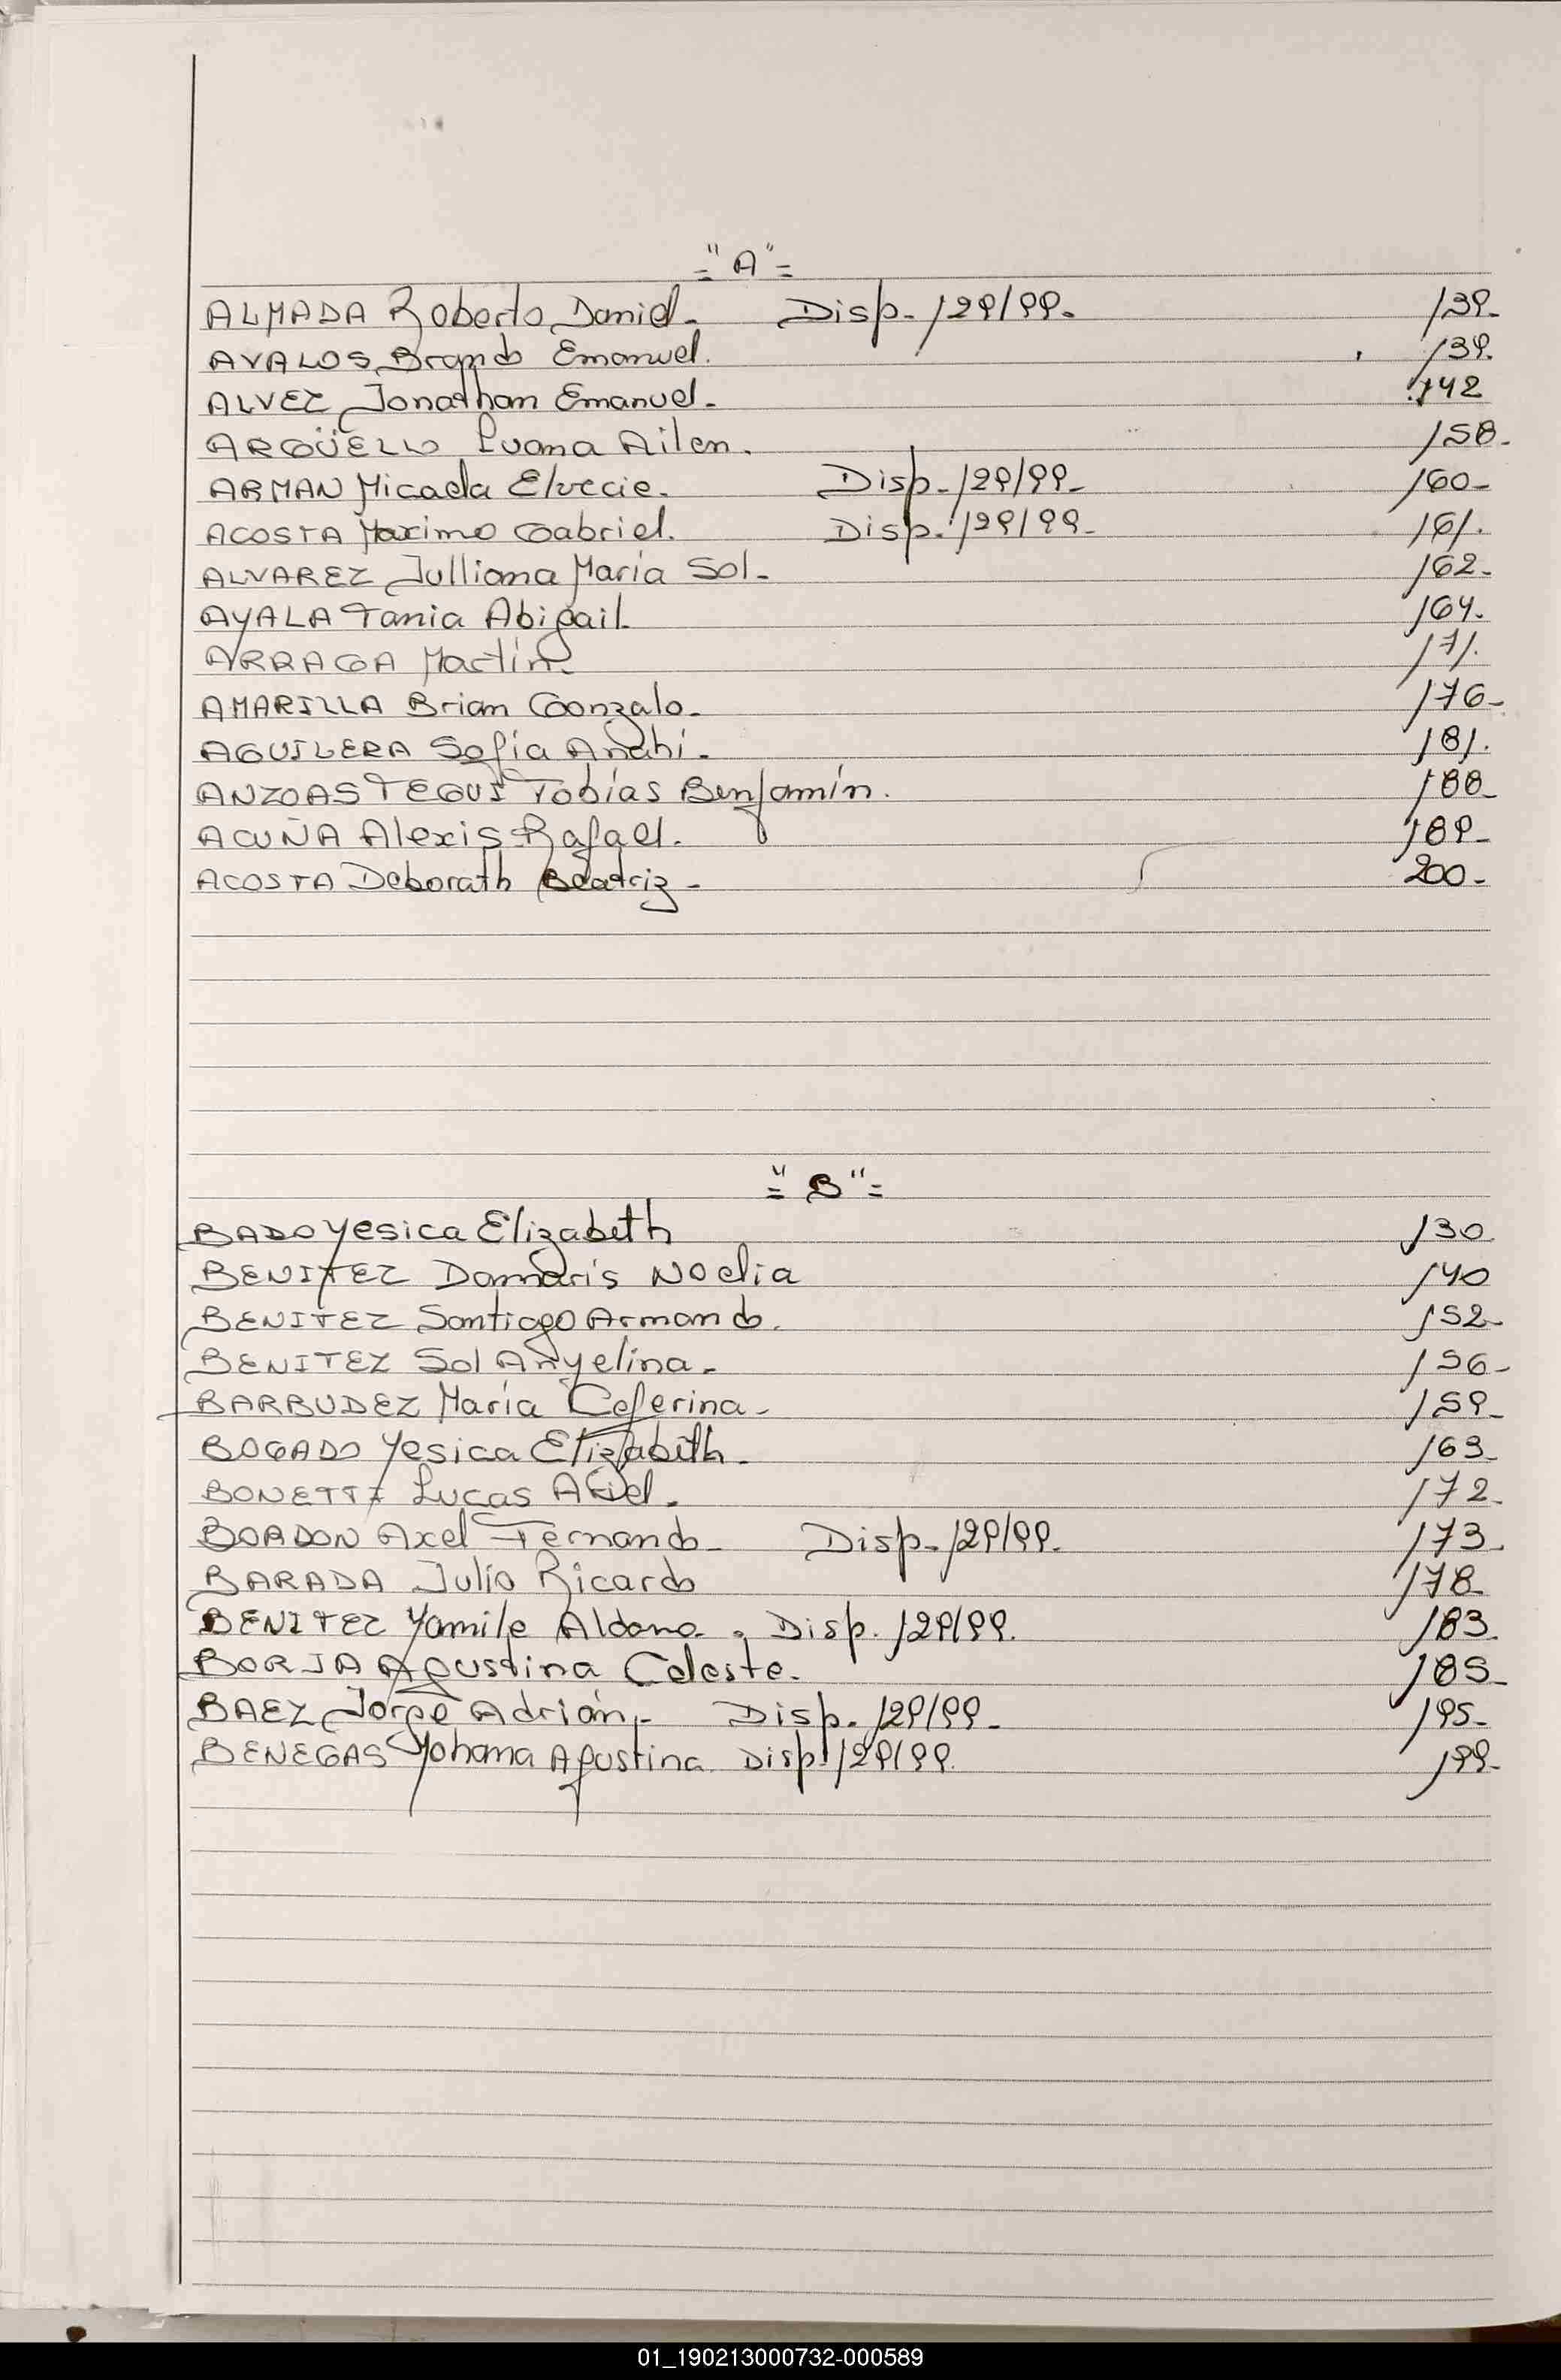 ="A"=
ALMADA Roberto Daniel. Disp. 129/99. 139.
AVALOS Brando Emanuel. 139.
ALVEZ Jonathan Emanuel. 142
ARGÜELLO Luana Ailen. 158.
ARMAN Micaela Elvecie. Disp. 129/99. 160.
ACOSTA Maximo Gabriel. Disp. 129/99. 161.
ALVAREZ Julliana María Sol. 162.
AYALA Tania Abigail. 164.
ARRAGA Martín. 171.
AMARILLA Brian Gonzalo. 176.
AGUILERA Sofía Anahí. 181.
ANZOASTEGUI Tobías Benjamín. 188.
ACUÑA Alexis Rafael. 189.
ACOSTA Deborath Beatriz. 200.
="B"=
BADO Yesica Elizabeth 130.
BENITEZ Damaris Noelia 140
BENITEZ Santiago Armando. 152.
BENITEZ Sol Anyelina. 156.
BARBUDEZ María Ceferina. 159.
BOGADO Yesica Elizabeth. 163.
BONETTI Lucas Ariel. 172.
BORDON Axel Fernando. Disp. 129/99. 173.
BARADA Julio Ricardo 178.
BENITEZ Yamile Aldana. Disp. 129/99. 183.
BORJA Agustina Celeste. 185.
BAEZ Jorge Adrián. Disp. 129/99. 195.
BENEGAS Yohana Agustina. Disp. 129/99. 199.
01_190213000732-000589